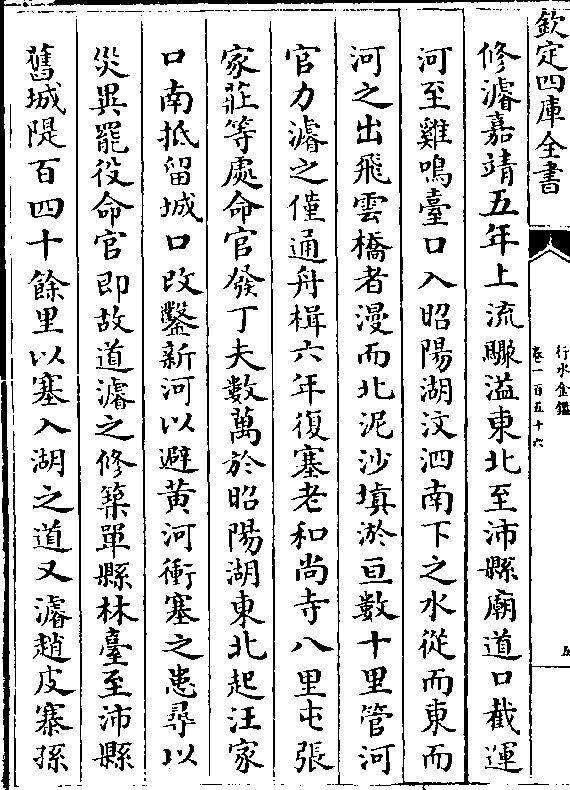 欽定四庫全書
行水金鑑
卷一百五十六
五
修濬嘉靖五年上流驟溢東北至沛縣廟道口截運
河至雞鳴臺口入昭陽湖汶泗南下之水從而東而
河之出飛雲橋者漫而北泥沙填淤亘數十里管河
官力濬之僅通舟楫六年復塞老和尚寺八里屯張
家莊等處命官發丁夫數萬於昭陽湖東北起汪家
口南抵留城口改鑿新河以避黄河衝塞之患尋以
災異罷役命官即故道濬之修築單縣林臺至沛縣
舊城隄百四十餘里以塞入湖之道又濬趙皮寨孫